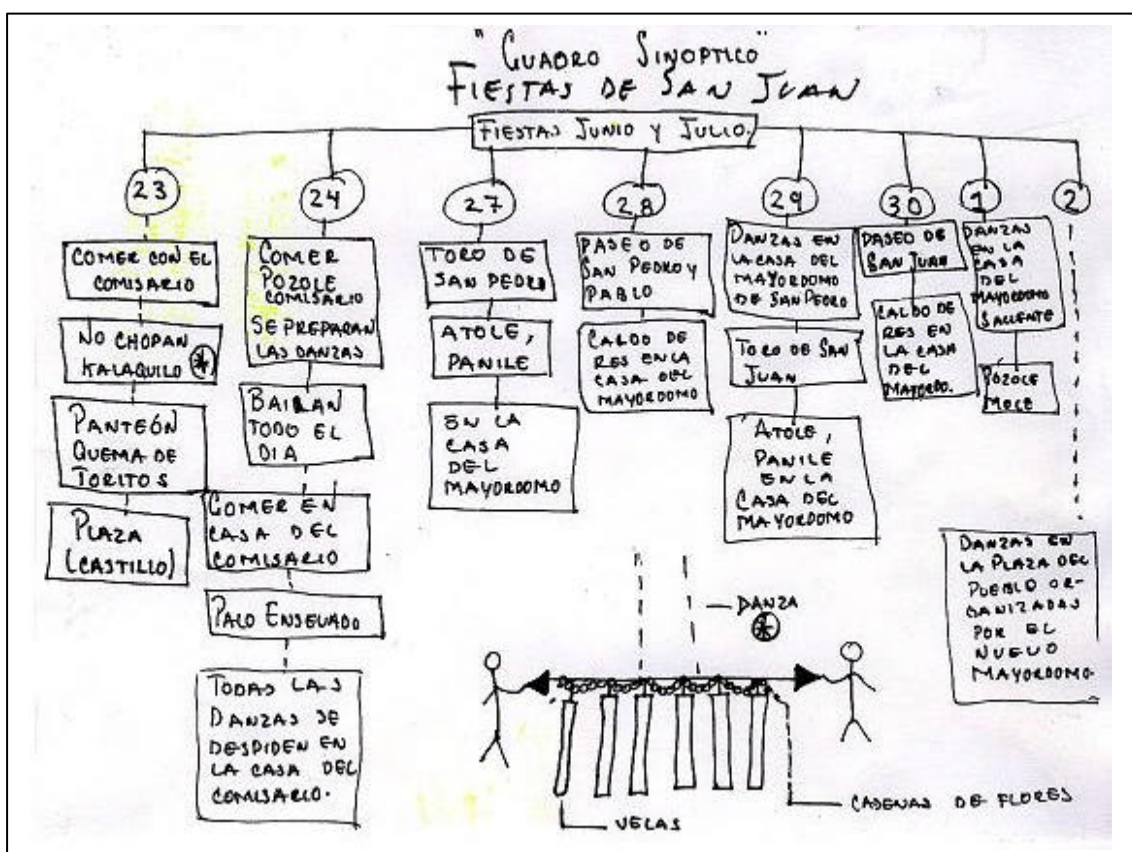 "CUADRO SINOPTICO"
FIESTAS DE SAN JUAN
FIESTAS JUNIO Y JULIO.
23
COMER CON EL
COMISARIO
NO CHOPAN
KALAQUILO *
PANTEÓN
QUEMA DE
TORITOS
PLAZA
(CASTILLO)
24
COMER
POZOLE
COMISARIO
SE PREPARAN
LAS DANZAS
BAILAN
TODO EL
DIA
COMER EN
CASA DEL
COMISARIO
PALO ENSEVADO
TODAS LAS
DANZAS SE
DESPIDEN EN
LA CASA DEL
COMISARIO.
27
TORO DE
SAN PEDRO
ATOLE,
PANILE
EN LA
CASA
DEL
MAYORDOMO
28
PASEO DE
SAN PEDRO Y
PABLO
CALDO DE
RES EN LA
CASA DEL
MAYORDOMO
29
DANZAS EN
LA CASA DEL
MAYORDOMO
DE SAN PEDRO
TORO DE SAN
JUAN
ATOLE,
PANILE
EN LA
CASA DEL
MAYORDOMO
30
PASEO DE
SAN JUAN
CALDO DE
RES EN
LA CASA
DEL
MAYORDO.
1
DANZAS
EN LA CASA
DEL
MAYORDOMO
SALIENTE
POZOLE
MOLE
2
DANZAS EN
LA PLAZA DEL
PUEBLO OR-
GANIZADAS
POR EL
NUEVO
MAYORDOMO.
DANZA
*
VELAS
CADENAS DE FLORES